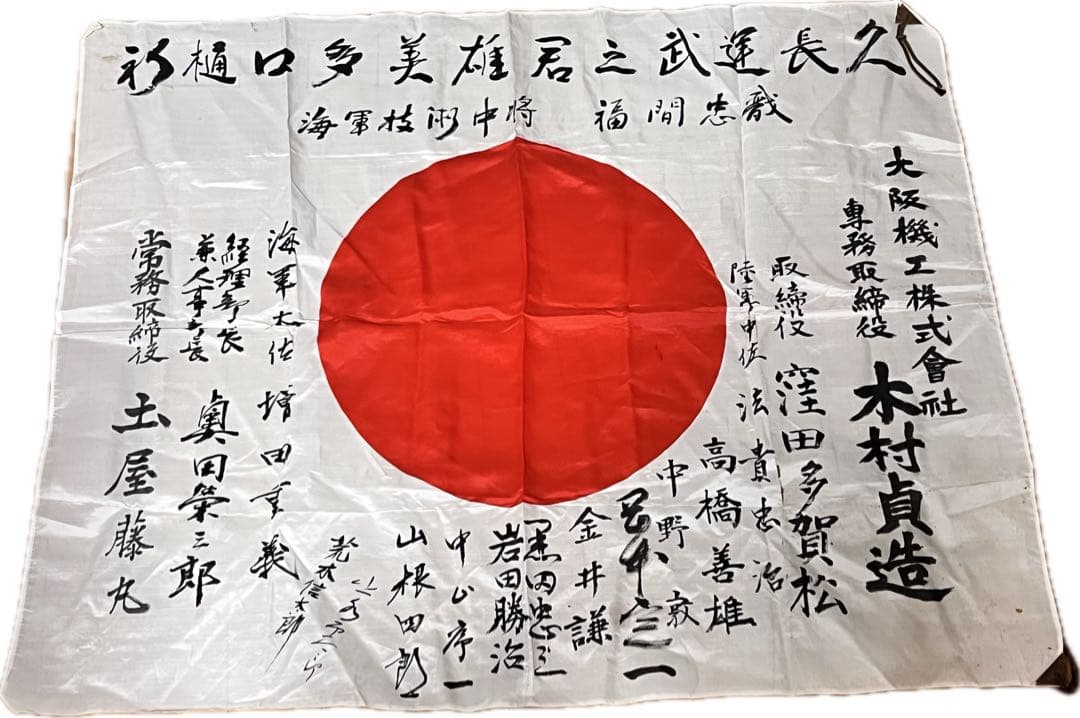 祈樋口多美雄君之武運長久
海軍技術中将 福間忠哉
大阪機工株式會社
専務取締役 木村貞造
取締役 窪田多賀松
陸軍中佐 法貴忠治
高橋善雄
中野敦
宗一
金井謙
黒田忠
岩田勝治
中山序一
山根田郎
信太郎
海軍大佐 増田重義
経理部長
兼人事部長 奥田榮三郎
常務取締役 土屋藤丸